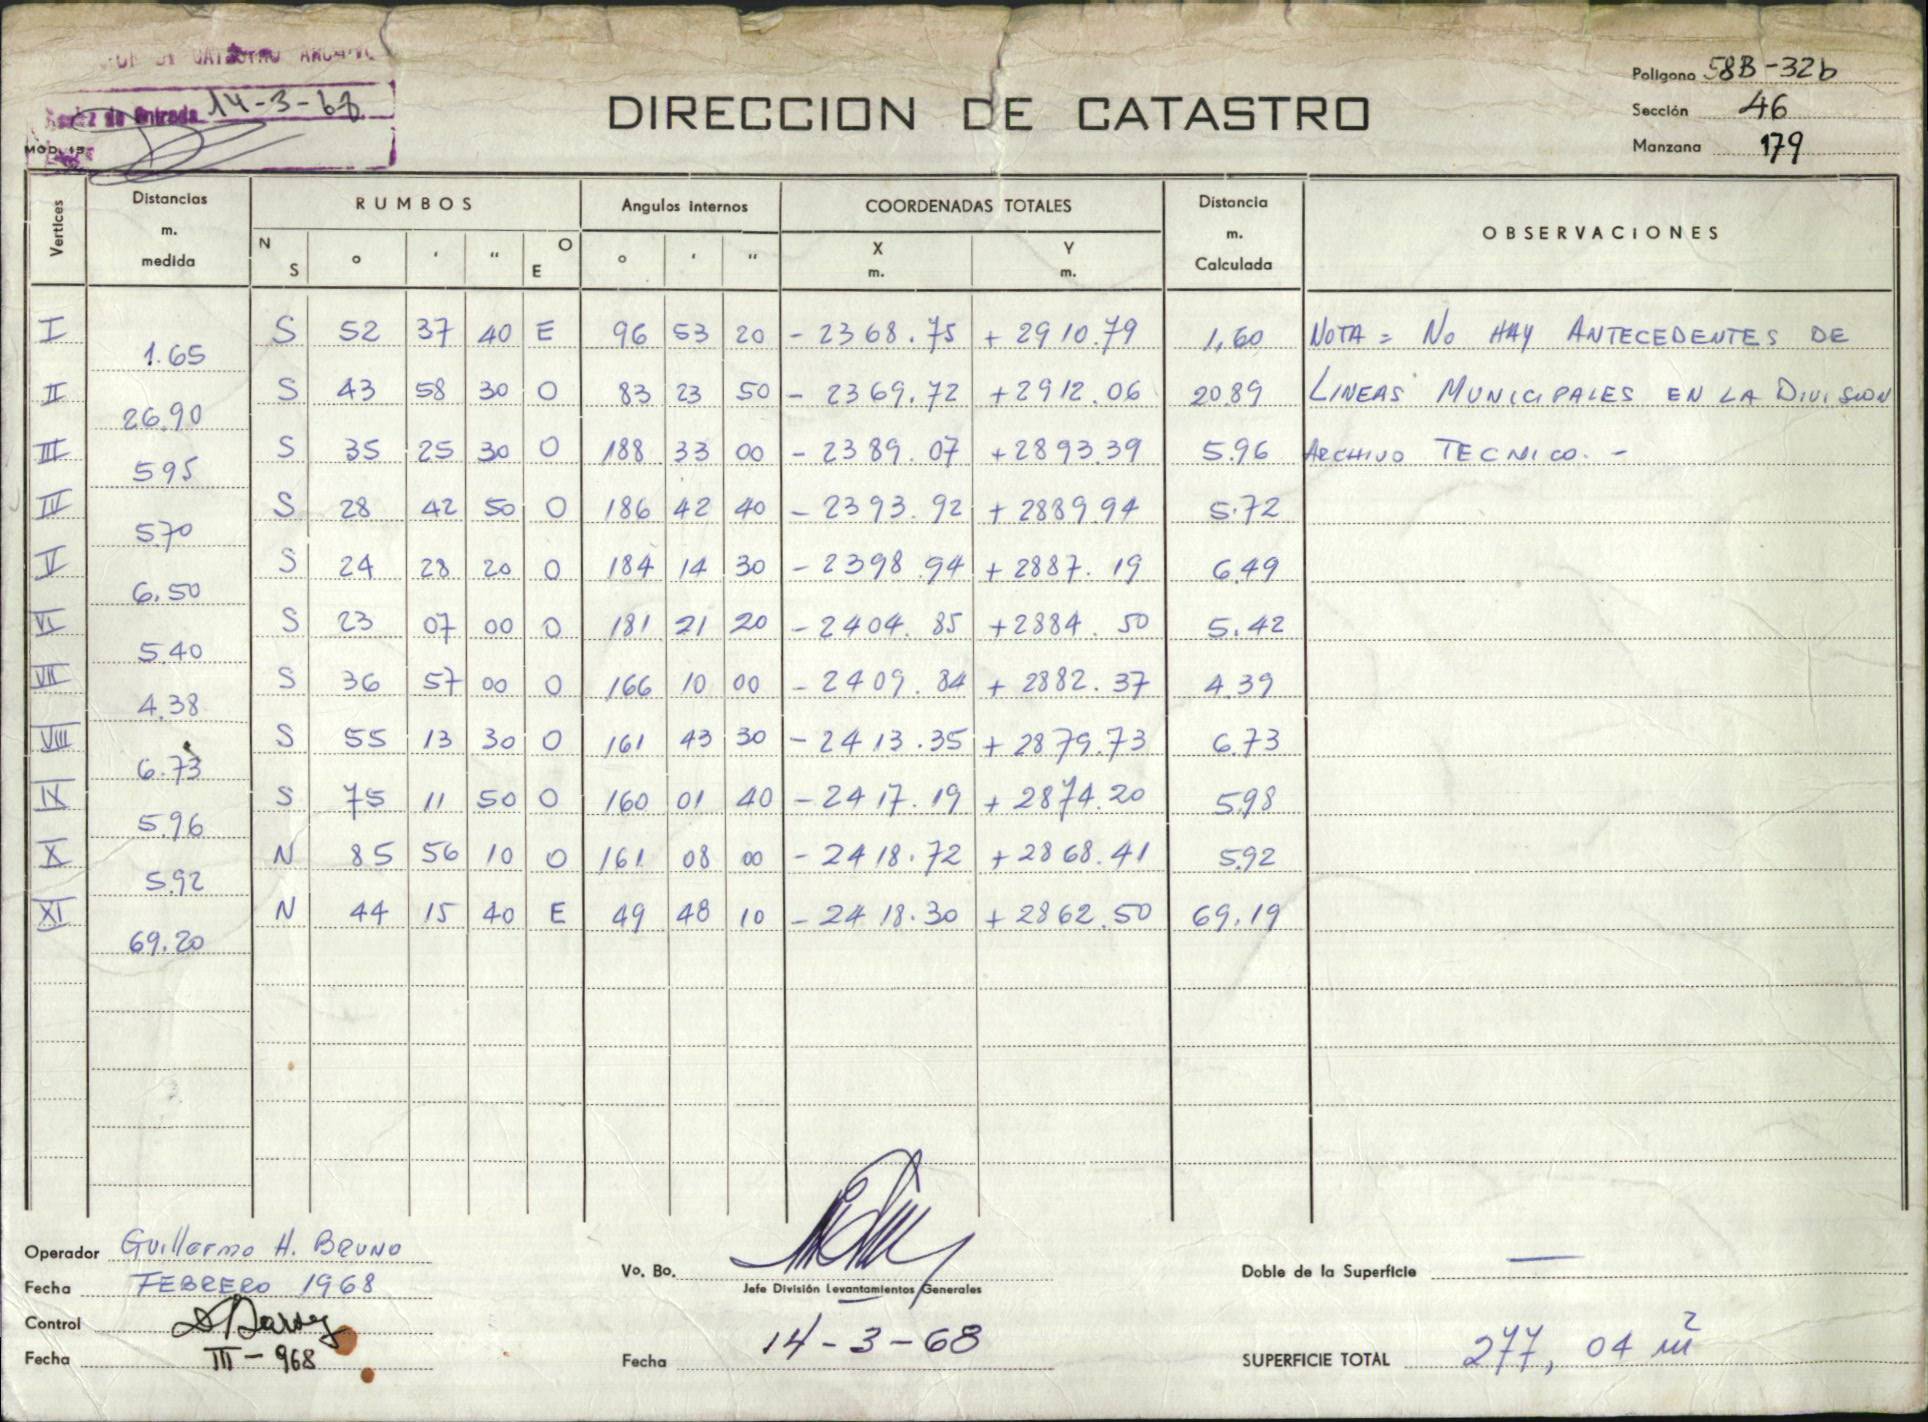 CATASTRO
de Entrada 14-3-68
MOD. 15
DIRECCION DE CATASTRO
Poligono 58B-32b
Sección 46
Manzana 179
Vertices
Distancias
m.
medida
RUMBOS
N S ° ' " O E
Angulos internos
° ' "
COORDENADAS TOTALES
X m.
Y m.
Distancia
m.
Calculada
OBSERVACIONES
I S 52 37 40 E 96 53 20 - 2368.75 + 2910.79 1,60 NOTA = NO HAY ANTECEDENTES DE
1.65
II S 43 58 30 O 83 23 50 - 2369.72 +2912.06 20.89 LINEAS MUNICIPALES EN LA DIVISION
26.90
III S 35 25 30 O 188 33 00 - 2389.07 +2893.39 5.96 ARCHIVO TECNICO. -
5.95
IIII S 28 42 50 O 186 42 40 - 2393.92 + 2889.94 5.72
5.70
V S 24 28 20 O 184 14 30 - 2398.94 + 2887.19 6.49
6.50
VI S 23 07 00 O 181 21 20 - 2404.85 +2884.50 5.42
5.40
VII S 36 57 00 O 166 10 00 - 2409.84 + 2882.37 4.39
4.38
VIII S 55 13 30 O 161 43 30 - 2413.35 + 2879.73 6.73
6.73
IX S 75 11 50 O 160 01 40 - 2417.19 + 2874.20 5.98
5.96
X N 85 56 10 O 161 08 00 - 2418.72 + 2868.41 5.92
5.92
XI N 44 15 40 E 49 48 10 - 2418.30 + 2862.50 69.19
69.20
Operador Guillermo H. BRUNO
Fecha FEBRERO 1968
Control
Fecha III - 968
Vo. Bo.
Jefe División Levantamientos Generales
Fecha 14-3-68
Doble de la Superficie —
SUPERFICIE TOTAL 277,04 m²